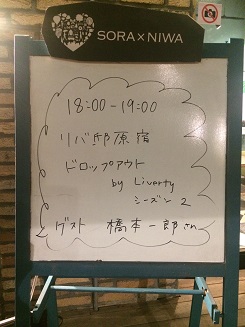 SORA×NIWA
18:00-19:00
リバ邸原宿
ドロップアウト
by Liverty
シーズン2
ゲスト 橋本一郎さん